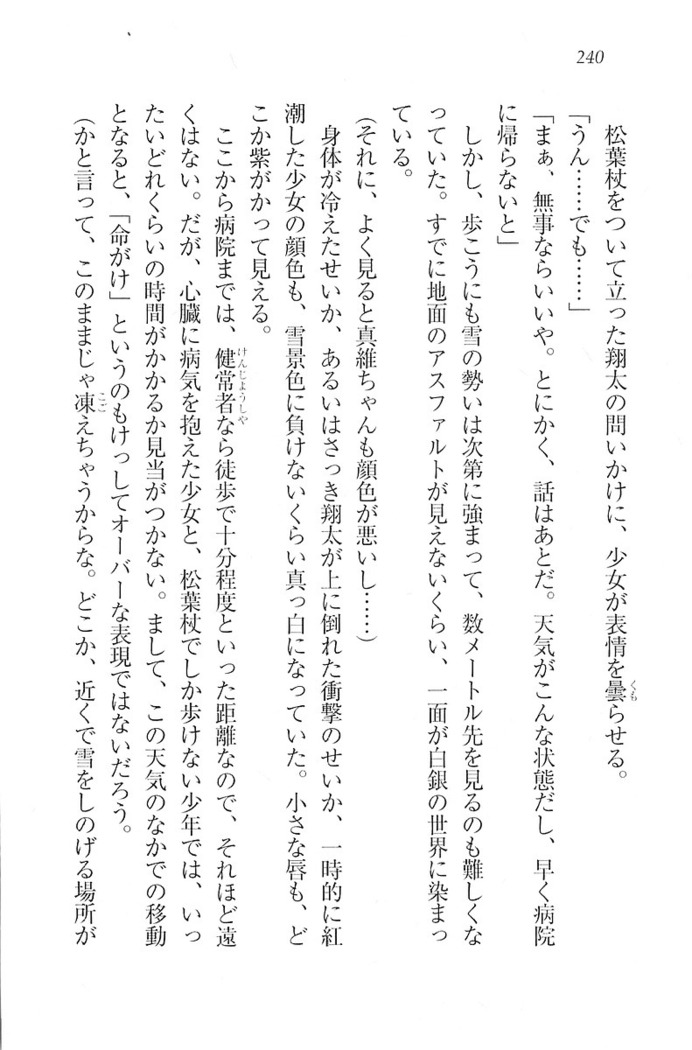 240
松葉杖をついて立った翔太の問いかけに、少女が表情を曇らせる。
「うん……でも……」
「まぁ、無事ならいいや。とにかく、話はあとだ。天気がこんな状態だし、早く病院
に帰らないと」
しかし、歩こうにも雪の勢いは次第に強まって、数メートル先を見るのも難しくな
っていた。すでに地面のアスファルトが見えないくらい、一面が白銀の世界に染まっ
ている。
(それに、よく見ると真維ちゃんも顔色が悪いし……)
身体が冷えたせいか、あるいはさっき翔太が上に倒れた衝撃のせいか、一時的に紅
潮した少女の顔色も、雪景色に負けないくらい真っ白になっていた。小さな唇も、ど
こか紫がかって見える。
ここから病院までは、健常者なら徒歩で十分程度といった距離なので、それほど遠
くはない。だが、心臓に病気を抱えた少女と、松葉杖でしか歩けない少年では、いっ
たいどれくらいの時間がかかるか見当がつかない。まして、この天気のなかでの移動
となると、「命がけ」というのもけっしてオーバーな表現ではないだろう。
(かと言って、このままじゃ凍えちゃうからな。どこか、近くで雪をしのげる場所が
くも
けんじょうしゃ
こご